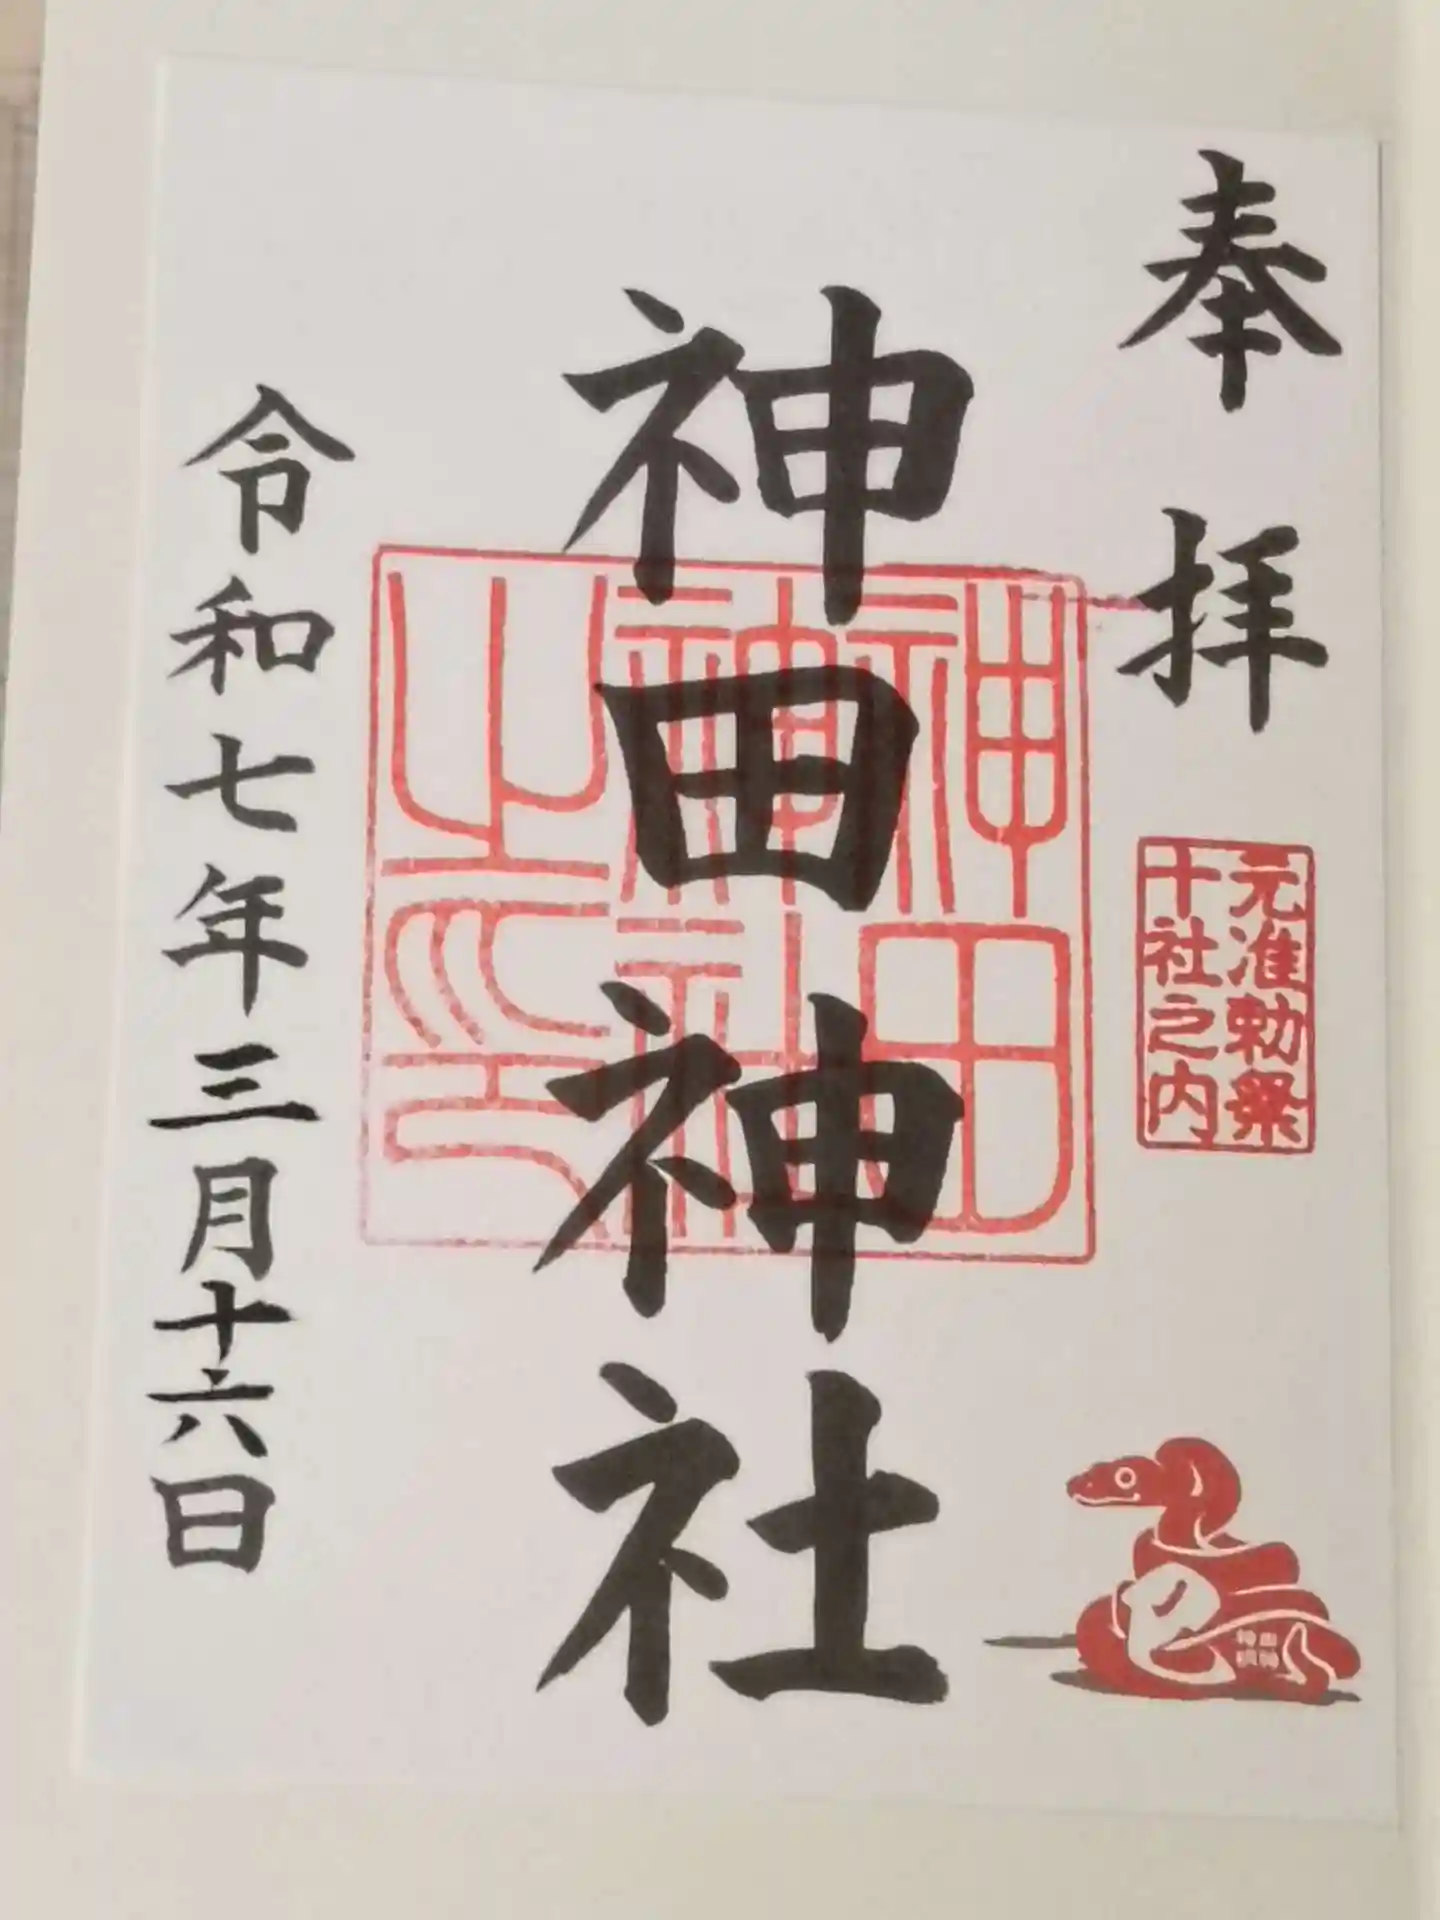 奉拝
元准勅祭
十社之内
神田神社
神田
神社
之印
巳
令和七年三月十六日